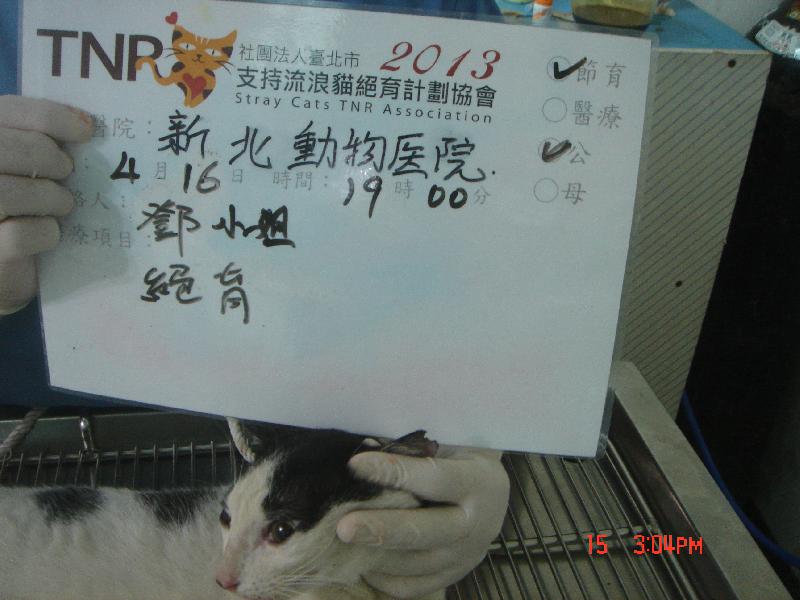 TNR 社團法人臺北市 2013
支持流浪貓絕育計劃協會
Stray Cats TNR Association
✓節育
○醫療
✓公
○母
醫院：新北動物医院
4月16日 時間：19時00分
絡人：鄧小姐
療項目：
絕育
15 3:04PM